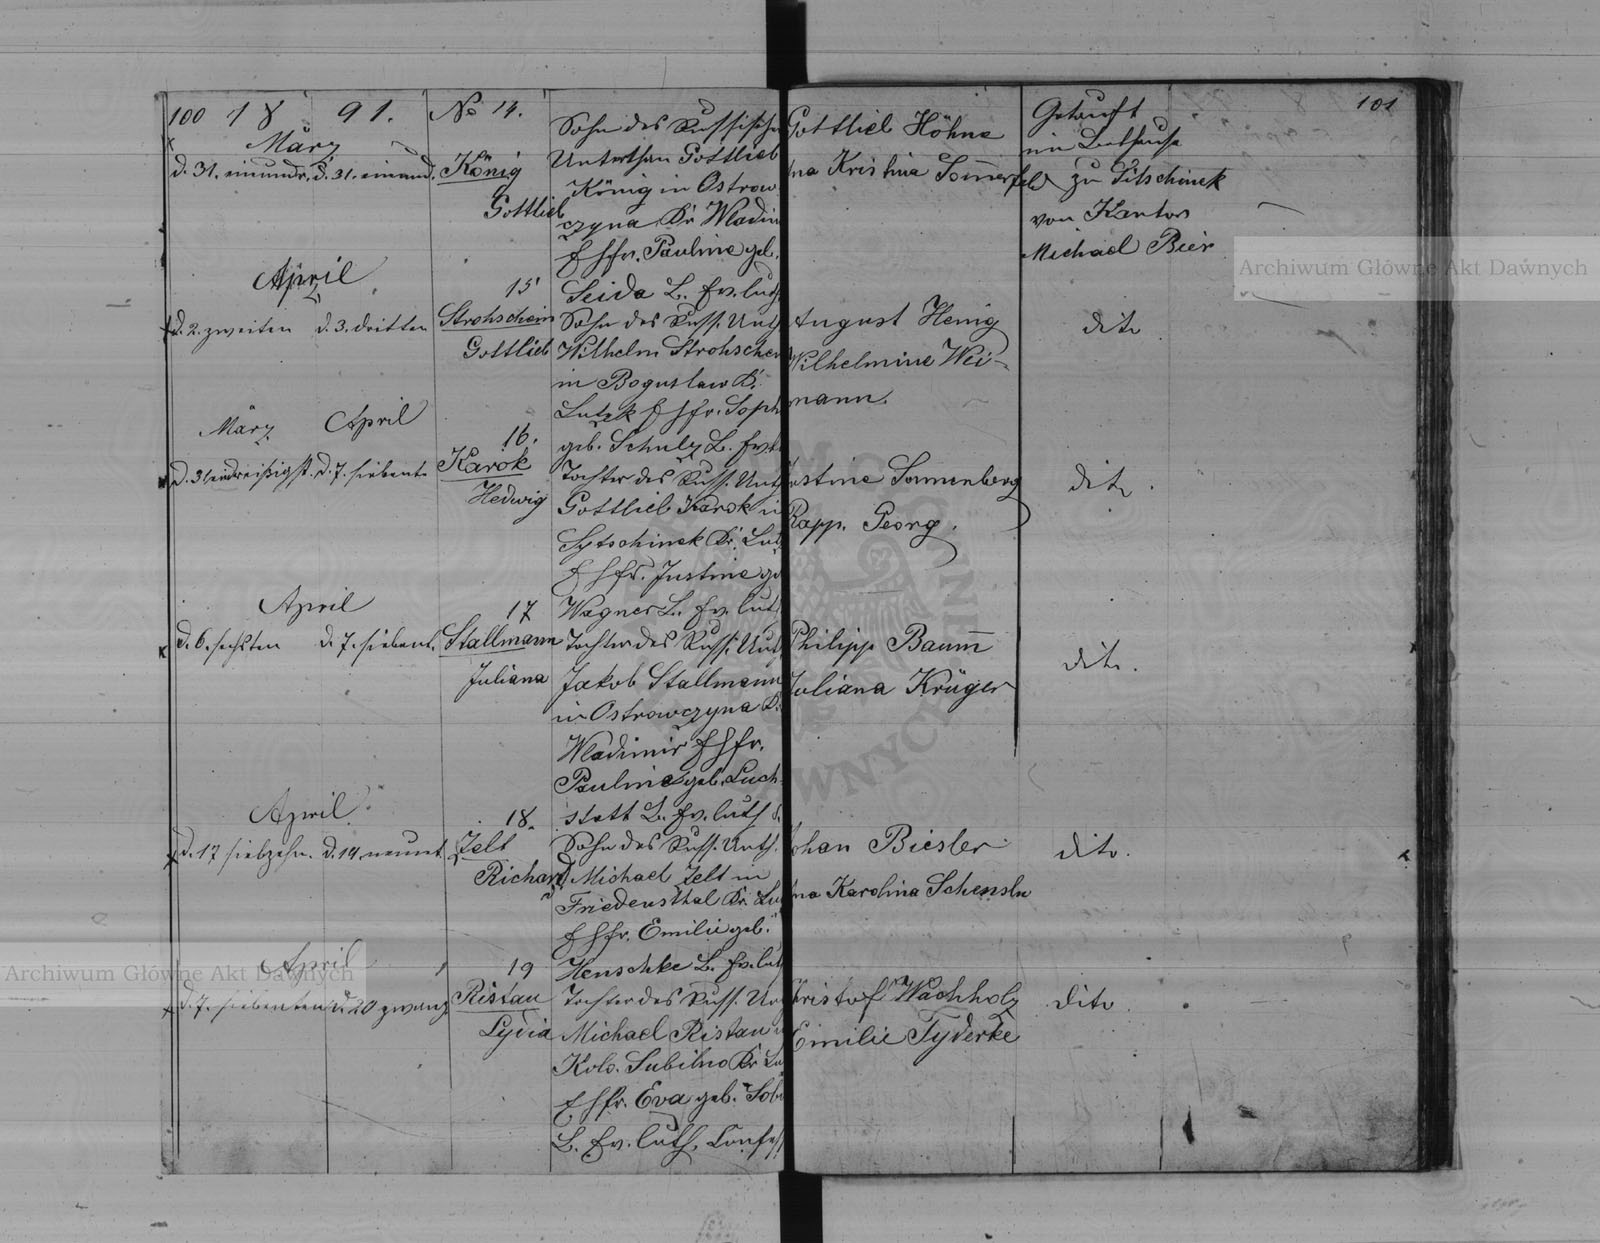 100 18 91. No 14.
März
d. 31. einundr. d. 31. einund.
König
Gottlieb
Sohn des Russischen
Unterthan Gottlieb
König in Ostrow
czyna Kr Wladim
Ehfr. Pauline geb.
Seida B. Ev. luth
Gottlieb Höhne
Kristina Sommerfeld
Getauft
im Bethause
zu Sitschinek
von Kantor
Michael Beier
101
April
d. 2. zweiten d. 3. dritten
15
Strohschein
Gottlieb
Sohn des Russ. Unth
Wilhelm Strohschein
in Boguslaw Kr.
Lutzk Ehfr. Soph
geb. Schulz B. Ev. l
August Henig
Wilhelmine Wei-
mann.
dito
März April
d. 31 eindreißigst. d. 7. siebente
16.
Karok
Hedwig
Tochter des Russ. Unth
Gottlieb Karok in
Sytschinek Kr. Lut
Ehfr. Justine ge
Wagner B. Ev. lut
Sonnenberg
Rapp. Georg.
dito.
April
d. 6. sechsten d. 7. siebent.
17
Stallmann
Juliana
Tochter des Russ. Unt
Jakob Stallmann
in Ostrowczyna Kr
Wladimir Ehfr.
Pauline geb. Luch
statt B. Ev. luth
Philipp Baum
Juliana Krüger
dito.
April
d. 17 siebzehn. d. 19. neunt
18.
Zelt
Richard
Sohn des Russ. Unth.
Michael Zelt in
Friedensthal Kr. Lu
Ehfr. Emilie geb.
Henschke B. Ev. lut
Johan Biesler
Karolina
dito.
April
d. 7. siebenten d. 20 zwanz
19
Ristau
Lydia
Tochter des Russ. Un
Michael Ristau
Kolo. Subilno Kr Lu
Ehfr. Eva geb. Sob
B. Ev. luth. Confess
Kristof Wachholz
Emilie Tyderke
dito.
Archiwum Główne Akt Dawnych
Archiwum Główne Akt Dawnych